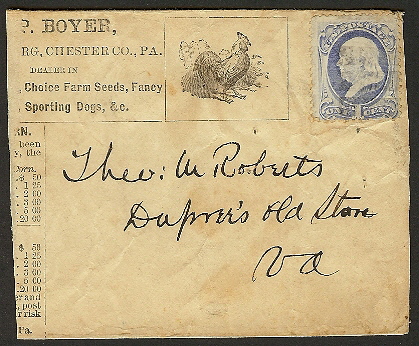 P. BOYER,
RG, CHESTER CO., PA.
DEALER IN
Choice Farm Seeds, Fancy
Sporting Dogs, &c.
RN.
been
y, the
Corn.
.$ 50
1 25
2 00
3 00
5 00
20 00
$ 50
1 25
2 00
3 00
5 00
20 00
er and
, post
r risk
Pa.
Theo: W Roberts
Duprees Old Store
Va